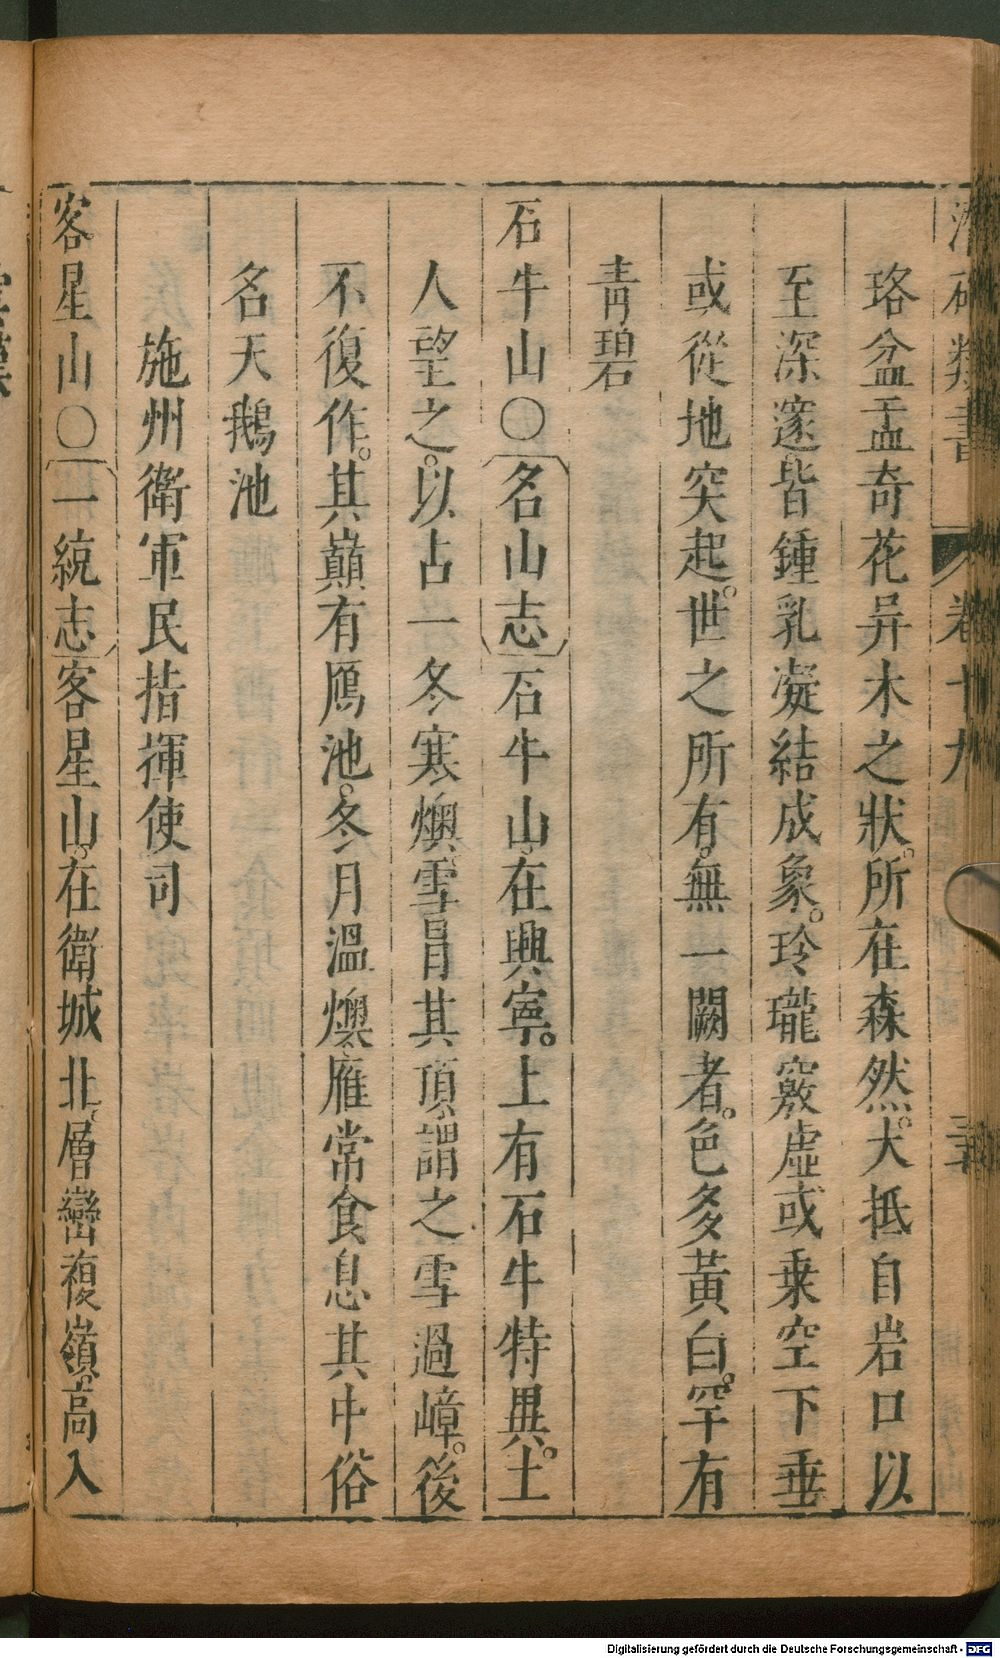 潛確類書 卷十九
珞盆盂奇花异木之狀。所在森然。大抵自岩口以
至深邃。皆鍾乳凝結成象。玲瓏竅虛。或乗空下垂
或從地突起。世之所有。無一闕者。色多黃白。罕有
青碧
石牛山〇〔名山志〕石牛山。在興寧。上有石牛特異。土
人望之。以占一冬寒燠。雪冒其頂。謂之雪過嶂。後
不復作。其巔有鴈池。冬月溫燠。雁常食息其中俗
名天鵝池
施州衛軍民指揮使司
客星山〇〔一統志〕客星山。在衛城北。層巒複嶺。高入
Digitalisierung gefördert durch die Deutsche Forschungsgemeinschaft - DFG